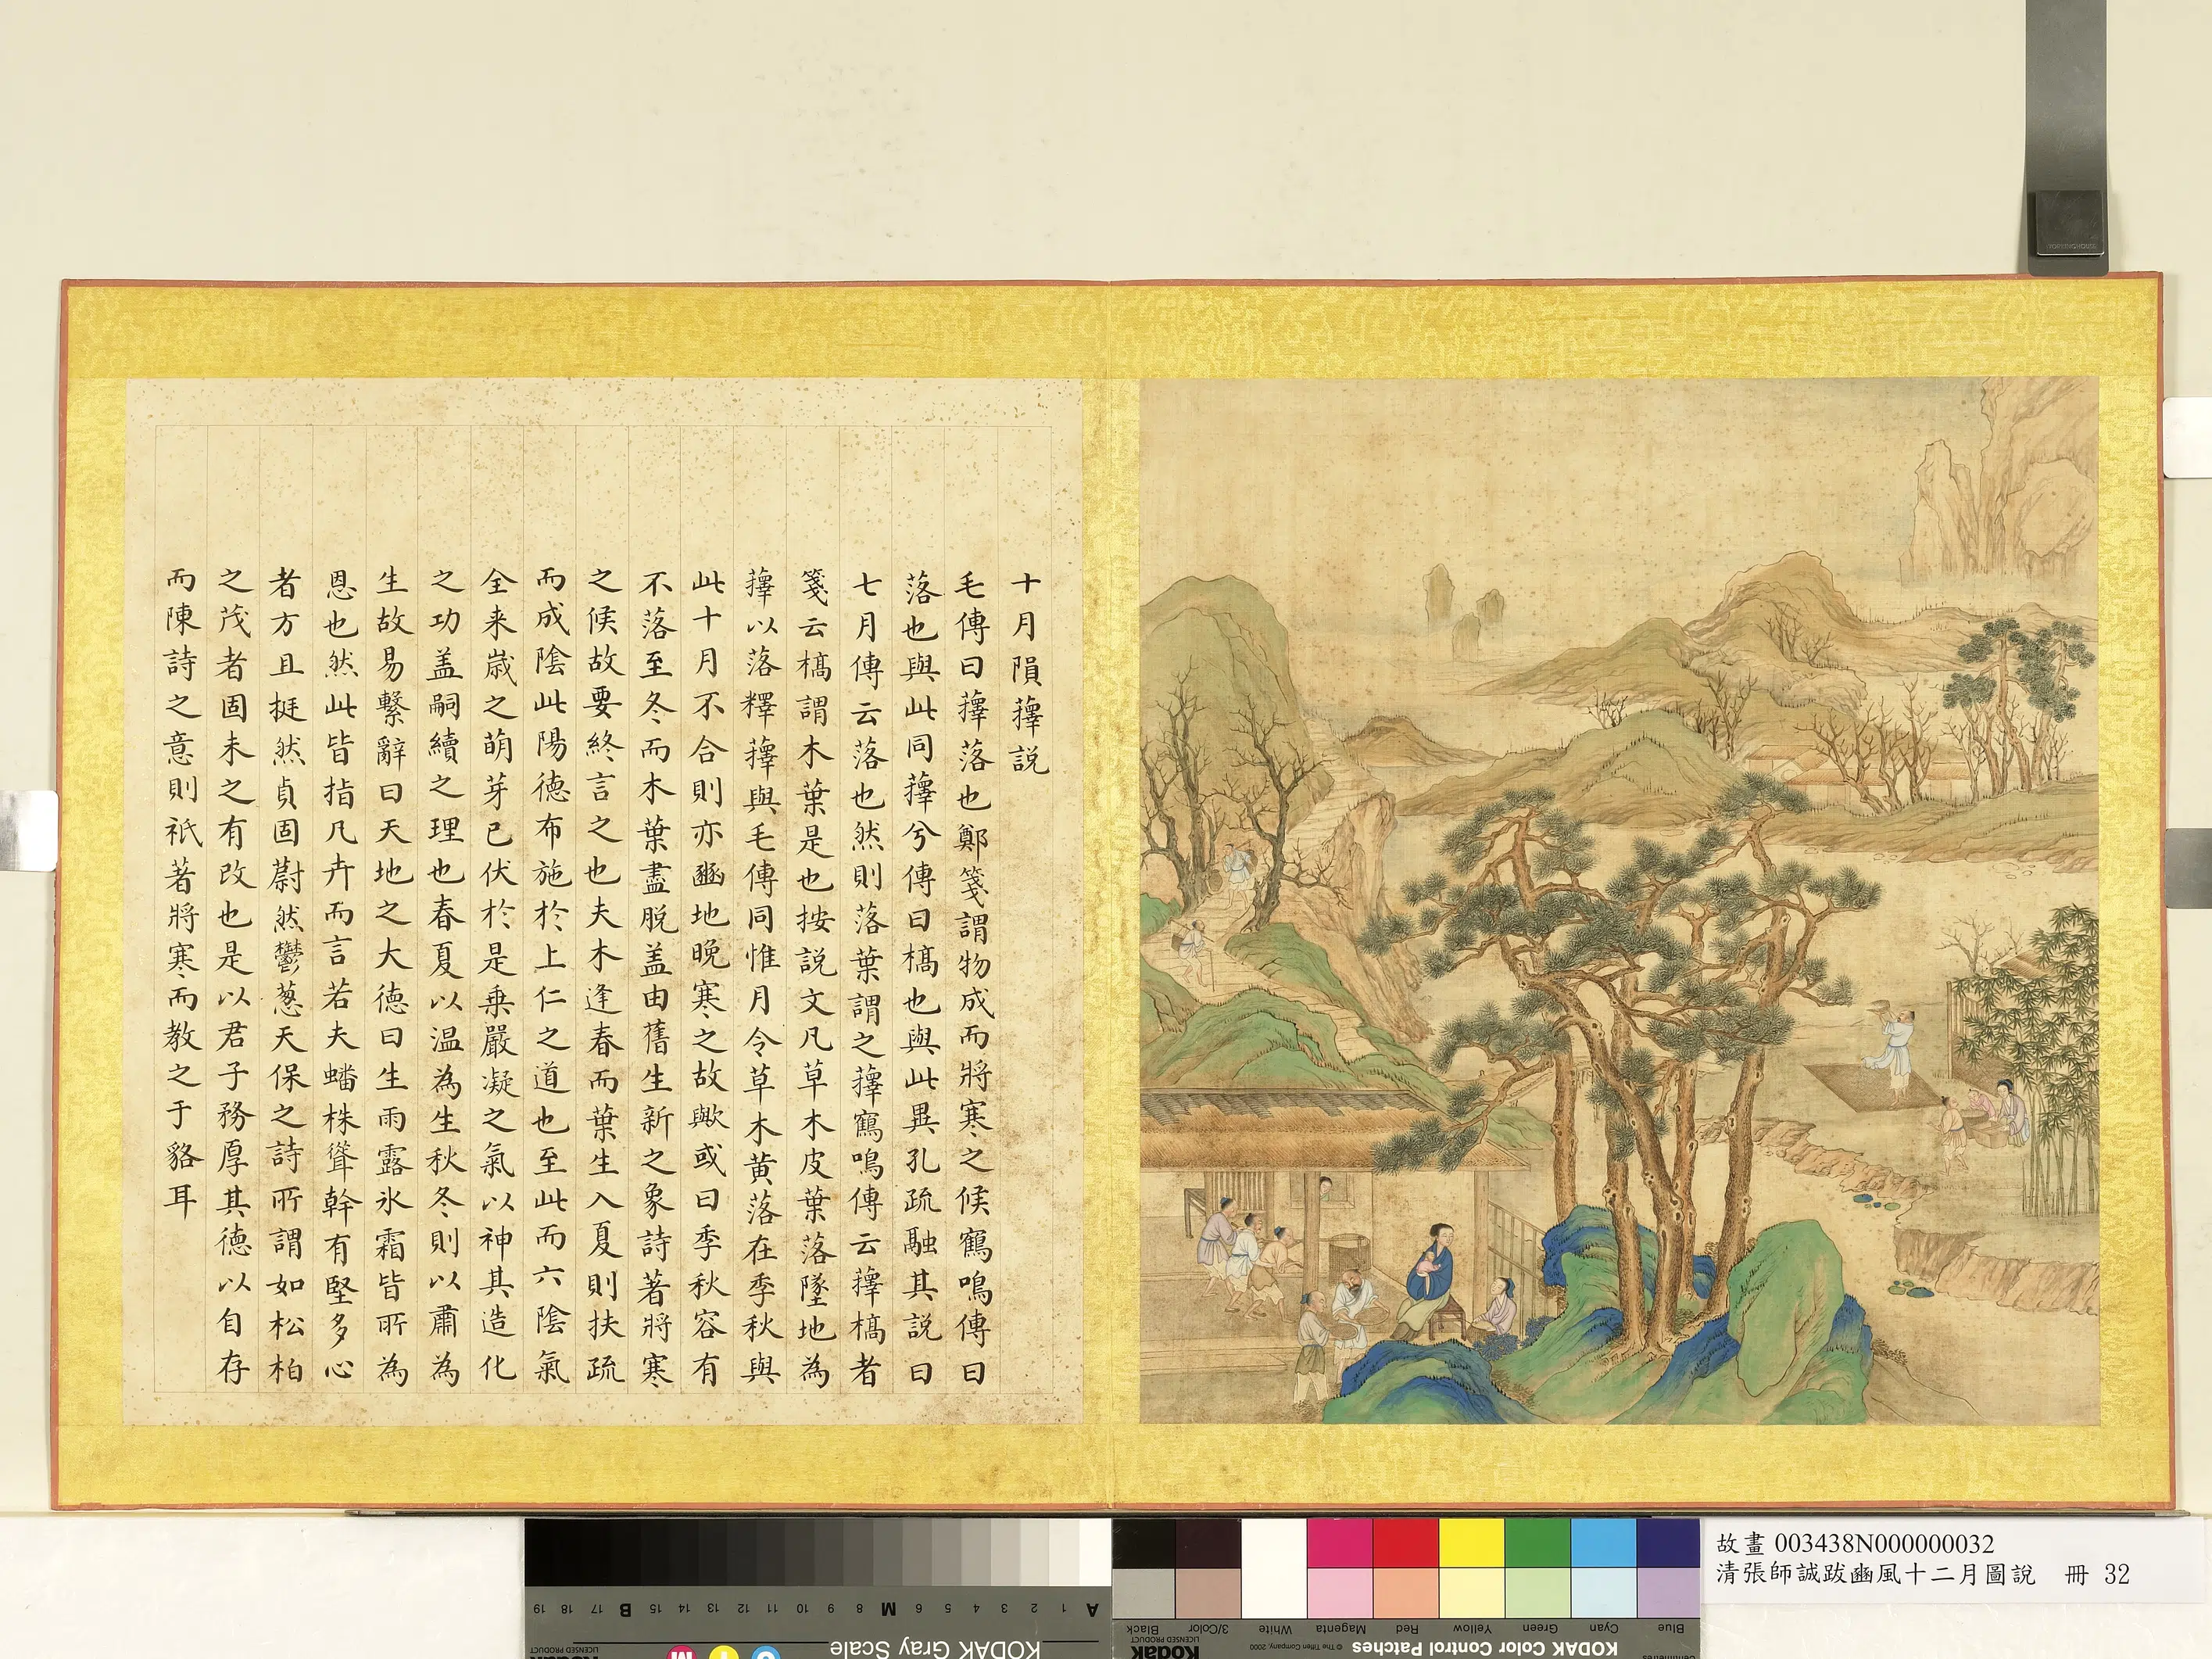 十月隕蘀說
毛傳曰蘀落也鄭箋謂物成而將寒之候鶴鳴傳曰
落也與此同蘀兮傳曰槁也與此異孔疏融其說曰
七月傳云落也然則落葉謂之蘀鶴鳴傳云蘀槁者
箋云槁謂木葉是也按說文凡草木皮葉落墜地為
蘀以落釋蘀與毛傳同惟月令草木黃落在季秋與
此十月不合則亦豳地晚寒之故歟或曰季秋容有
不落至冬而木葉盡脫盖由舊生新之象詩著將寒
之候故要終言之也夫木逢春而葉生入夏則扶疏
而成陰此陽德布施於上仁之道也至此而六陰氣
全来歲之萌芽已伏於是乗嚴凝之氣以神其造化
之功盖嗣續之理也春夏以温為生秋冬則以肅為
生故易繫辭曰天地之大德曰生雨露氷霜皆所為
恩也然此皆指凡卉而言若夫蟠株聳幹有堅多心
者方且挺然貞固蔚然鬱葱天保之詩所謂如松柏
之茂者固未之有改也是以君子務厚其德以自存
而陳詩之意則祇著將寒而教之于貉耳
故畫 003438N000000032
清張師誠跋豳風十二月圖說　冊 32
KODAK Gray Scale
A 1 2 3 4 5 6 M 8 9 10 11 12 13 14 15 B 17 18 19
C Y M
Kodak
LICENSED PRODUCT
KODAK Color Control Patches
© The Tiffen Company, 2000
Blue Cyan Green Yellow Red Magenta White 3/Color Black
Kodak
LICENSED PRODUCT